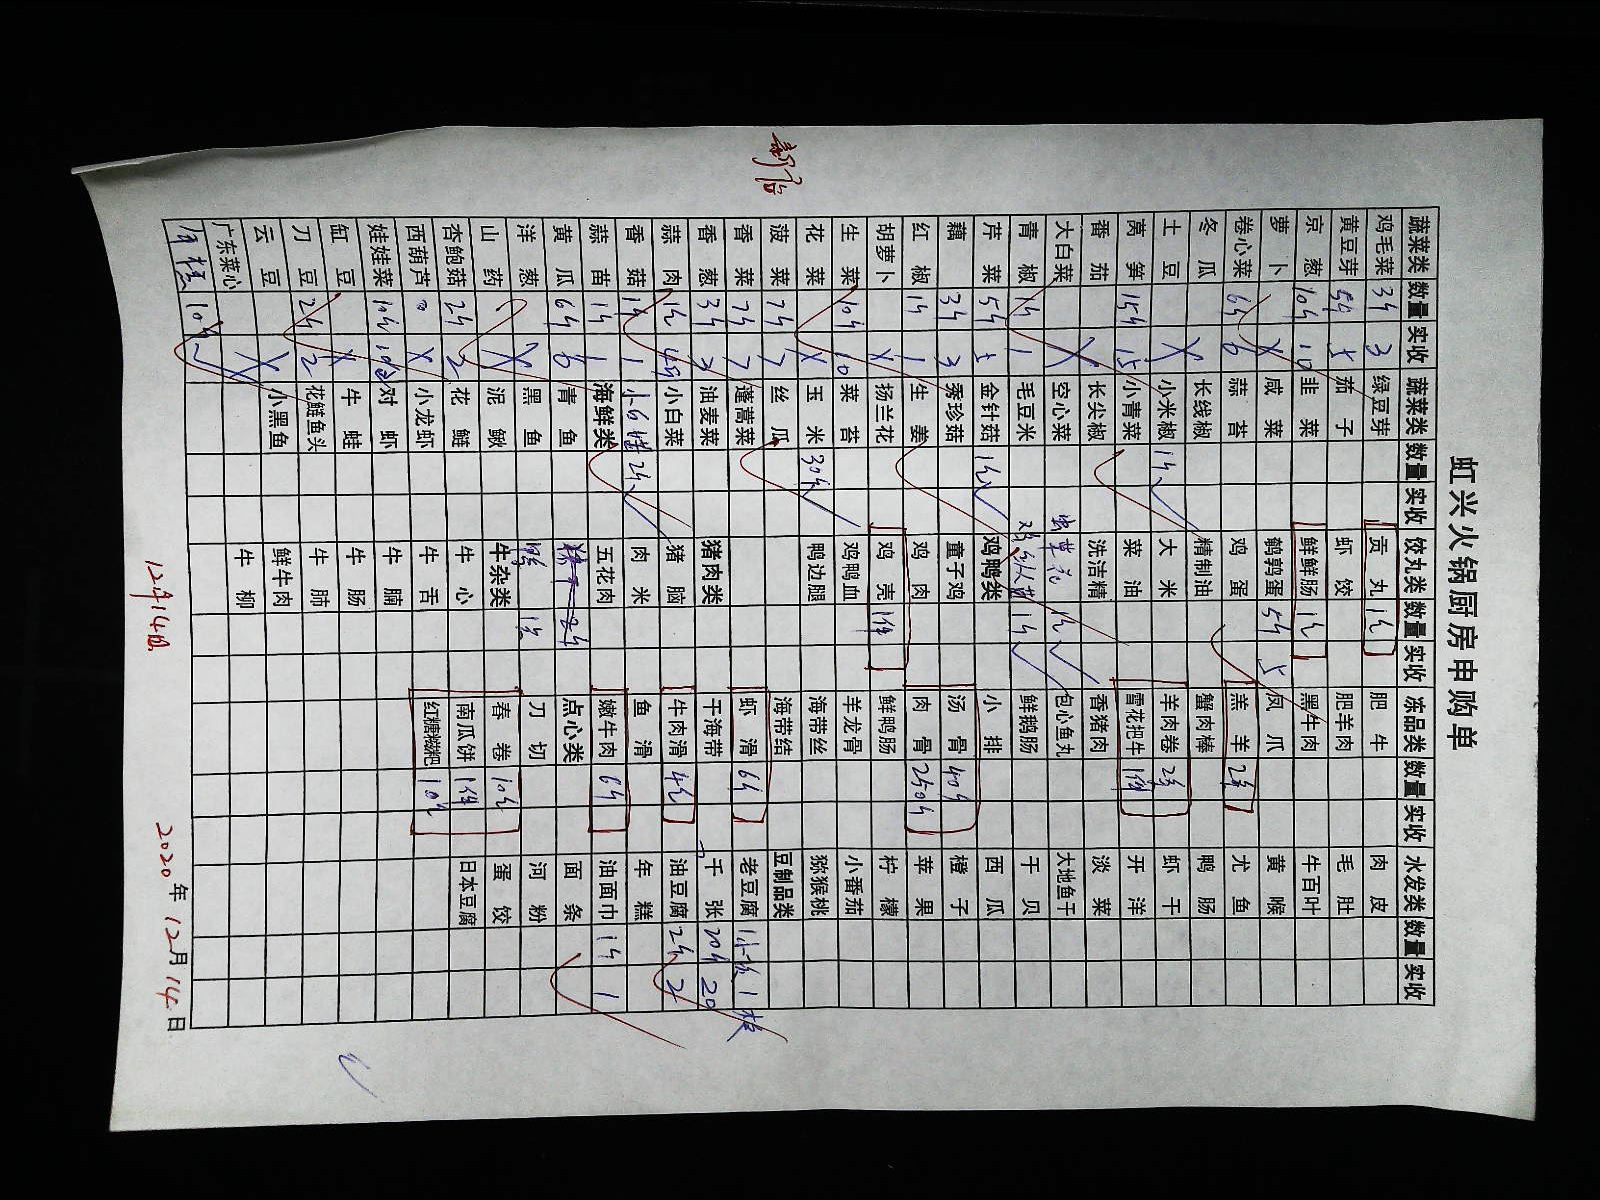 虹兴火锅厨房申购单
蔬菜类 数量 实收 蔬菜类 数量 实收 饺丸类 数量 实收 冻品类 数量 实收 水发类 数量 实收
鸡毛菜 3斤 3 绿豆芽 贡丸 1包 肥牛 肉皮
黄豆芽 5斤 5 茄子 虾饺 肥羊肉 毛肚
京葱 10斤 10 韭菜 鲜鲜肠 1包 黑牛肉 牛百叶
萝卜 X 咸菜 鹌鹑蛋 5斤 5 凤爪 黄喉
卷心菜 6斤 6 蒜苔 鸡蛋 羔羊 2斤 尤鱼
冬瓜 长线椒 精制油 蟹肉棒 鸭肠
土豆 X 小米椒 1斤 大米 羊肉卷 2斤 虾干
莴笋 15斤 15 小青菜 菜油 雪花把牛 1件 开洋
番茄 长尖椒 洗洁精 香猪肉 淡菜
大白菜 X 空心菜 虫草花 1包 包心鱼丸 大地鱼干
青椒 1斤 1 毛豆米 1斤 鲜鹅肠 干贝
芹菜 5斤 5 金针菇 1包 鸡鸭类 小排 西瓜
藕 3斤 3 秀珍菇 童子鸡 汤骨 40斤 橙子
红椒 1斤 1 生姜 鸡肉 肉骨 苹果
胡萝卜 X 扬兰花 鸡壳 1件 鲜鸭肠 柠檬
生菜 10斤 10 菜苔 鸡鸭血 羊龙骨 小番茄
花菜 X 玉米 30斤 鸭边腿 海带丝 猕猴桃
菠菜 7斤 7 丝瓜 海带结 豆制品类
香菜 7斤 7 蓬蒿菜 虾滑 6斤 老豆腐 1板
香葱 3斤 3 油麦菜 猪肉类 干海带 千张 20斤 20
蒜肉 1包 小白菜 猪脑 牛肉滑 4包 油豆腐 2斤 2
香菇 1斤 1 2斤 肉米 鱼滑 年糕
蒜苗 1斤 1 海鲜类 五花肉 嫩牛肉 6斤 油面巾 1斤 1
黄瓜 6斤 6 青鱼 点心类 面条
洋葱 X 黑鱼 刀切 河粉
山药 X 泥鳅 牛杂类 春卷 10包 蛋饺
杏鲍菇 2斤 2 花鲢 牛心 南瓜饼 1件 日本豆腐
西葫芦 X 小龙虾 牛舌 红糖糍粑 10包
娃娃菜 10包 10包 对虾 牛腩
缸豆 X 牛蛙 牛肠
刀豆 2斤 2 花鲢鱼头 牛肺
云豆 X 小黑鱼 鲜牛肉
广东菜心 X 牛柳
10斤
12月14日
2020年12月14日